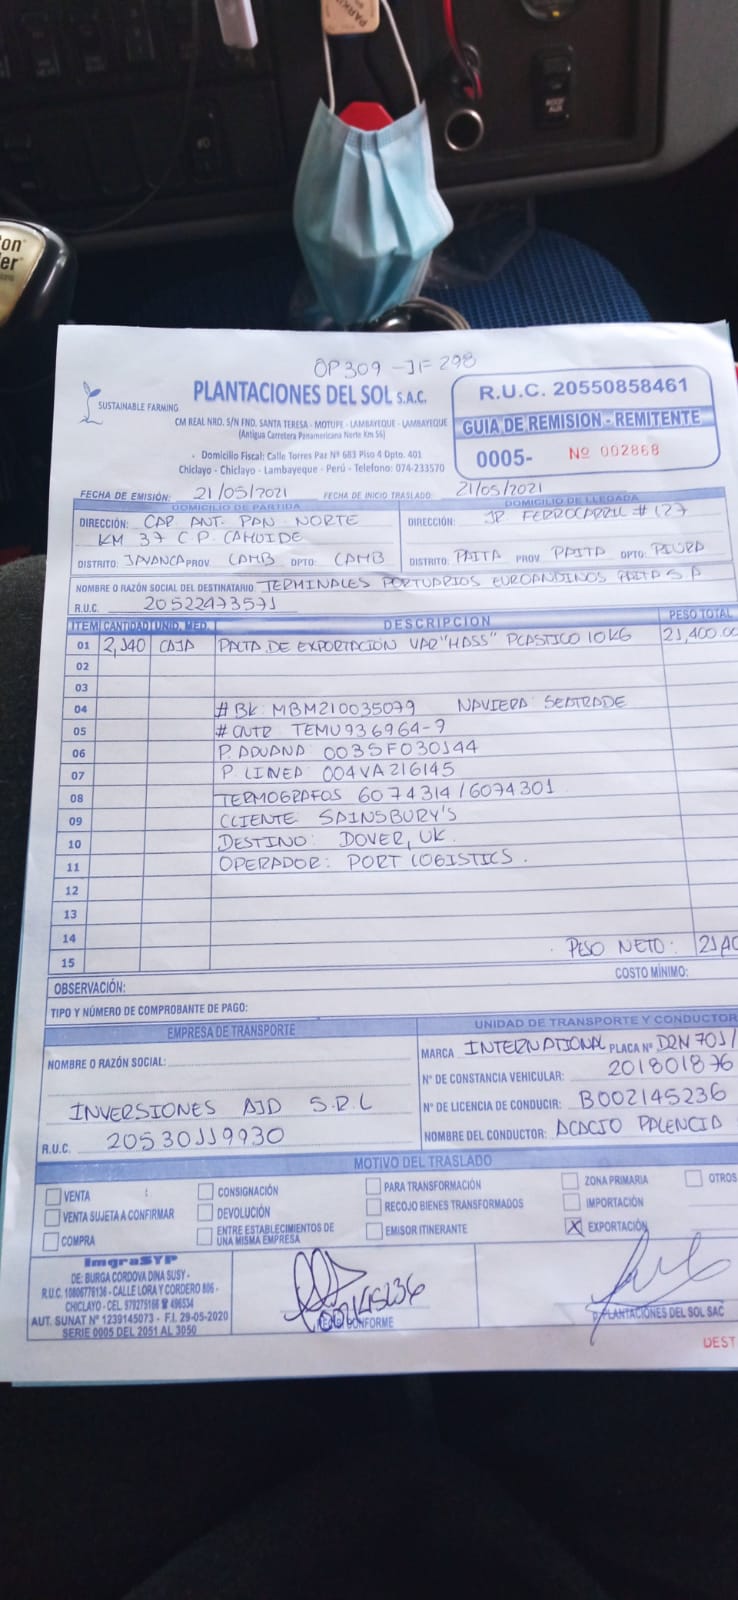 PARKI
on
der
BOOT AUX
OP309 - JF 298
SUSTAINABLE FARMING
PLANTACIONES DEL SOL S.A.C.
CM REAL NRO. S/N FND. SANTA TERESA - MOTUPE - LAMBAYEQUE - LAMBAYEQUE
(Antigua Carretera Panamericana Norte Km 56)
Domicilio Fiscal: Calle Torres Paz Nº 683 Piso 4 Dpto. 401
Chiclayo - Chiclayo - Lambayeque - Perú - Telefono: 074-233570
R.U.C. 20550858461
GUIA DE REMISION - REMITENTE
0005- Nº 002868
FECHA DE EMISIÓN: 21/05/2021 FECHA DE INICIO TRASLADO: 21/05/2021
DOMICILIO DE PARTIDA DOMICILIO DE LLEGADA
DIRECCIÓN: CAR ANT. PAN NORTE DIRECCIÓN: JR FERROCARRIL # 127
KM 37 C P. CAHUIDE
DISTRITO: JAYANCA PROV LAMB DPTO: LAMB DISTRITO: PAITA PROV PAITA DPTO: PIURA
NOMBRE O RAZÓN SOCIAL DEL DESTINATARIO TERMINALES PORTUARIOS EUROANDINOS PAITA S A
R.U.C. 20522473571
ITEM CANTIDAD UNID. MED. DESCRIPCION PESO TOTAL
01 2,140 CAJA PALTA DE EXPORTACIÓN VAR "HASS" PLASTICO 10KG 21,400.00
02
03
04 # BK MBM210035079 NAVIERA SEATRADE
05 # CNTR TEMU936964-7
06 P. ADUANA 0035F030144
07 P LINEA 004VA216145
08 TERMOGRAFOS 6074314/6074301
09 CLIENTE SAINSBURY'S
10 DESTINO: DOVER, UK.
11 OPERADOR: PORT LOGISTICS.
12
13
14 PESO NETO: 21,40
15
COSTO MÍNIMO:
OBSERVACIÓN:
TIPO Y NÚMERO DE COMPROBANTE DE PAGO:
EMPRESA DE TRANSPORTE UNIDAD DE TRANSPORTE Y CONDUCTOR
NOMBRE O RAZÓN SOCIAL: MARCA INTERNATIONAL PLACA Nº D2N 701/
Nº DE CONSTANCIA VEHICULAR: 201801876
INVERSIONES AJD S.R.L Nº DE LICENCIA DE CONDUCIR: B002145236
R.U.C. 20530119930 NOMBRE DEL CONDUCTOR: ACACIO PALENCIA
MOTIVO DEL TRASLADO
VENTA CONSIGNACIÓN PARA TRANSFORMACIÓN ZONA PRIMARIA OTROS
VENTA SUJETA A CONFIRMAR DEVOLUCIÓN RECOJO BIENES TRANSFORMADOS IMPORTACIÓN
COMPRA ENTRE ESTABLECIMIENTOS DE UNA MISMA EMPRESA EMISOR ITINERANTE X EXPORTACIÓN
ImgraSYP
DE: BURGA CORDOVA DINA SUSY -
R.U.C. 10806776136 - CALLE LORA Y CORDERO 806 -
CHICLAYO - CEL. 979275166 ☎ 496534
AUT. SUNAT Nº 1239145073 - F.I. 29-05-2020
SERIE 0005 DEL 2051 AL 3050
002145236
CONFORME
PLANTACIONES DEL SOL SAC
DEST